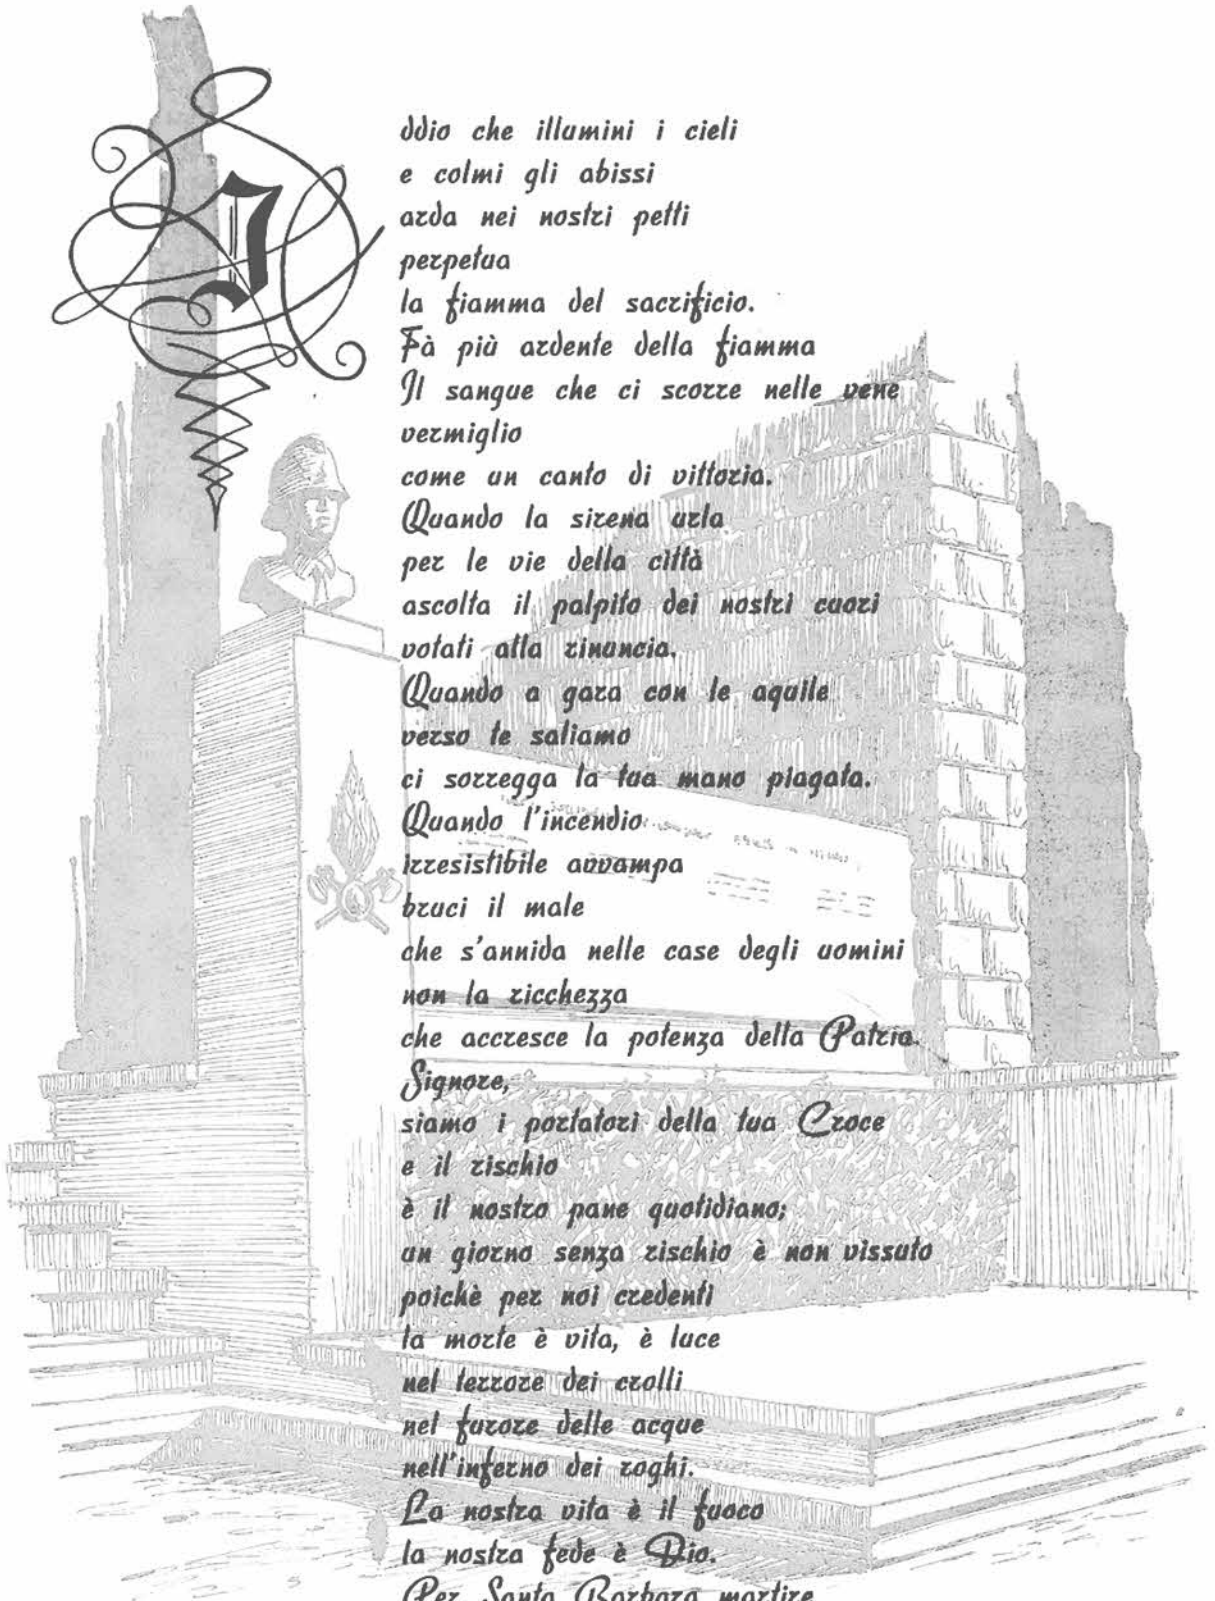 Iddio che illumini i cieli
e colmi gli abissi
arda nei nostri petti
perpetua
la fiamma del sacrificio.
Fà più ardente della fiamma
Il sangue che ci scorre nelle vene
vermiglio
come un canto di vittoria.
Quando la sirena urla
per le vie della città
ascolta il palpito dei nostri cuori
votati alla rinuncia.
Quando a gara con le aquile
verso te saliamo
ci sorregga la tua mano piagata.
Quando l'incendio
irresistibile avvampa
bruci il male
che s'annida nelle case degli uomini
non la ricchezza
che accresce la potenza della Patria.
Signore,
siamo i portatori della tua Croce
e il rischio
è il nostro pane quotidiano;
un giorno senza rischio è non vissuto
poichè per noi credenti
la morte è vita, è luce
nel terrore dei crolli
nel furore delle acque
nell'inferno dei roghi.
La nostra vita è il fuoco
la nostra fede è Dio.
Per Santa Barbara martire